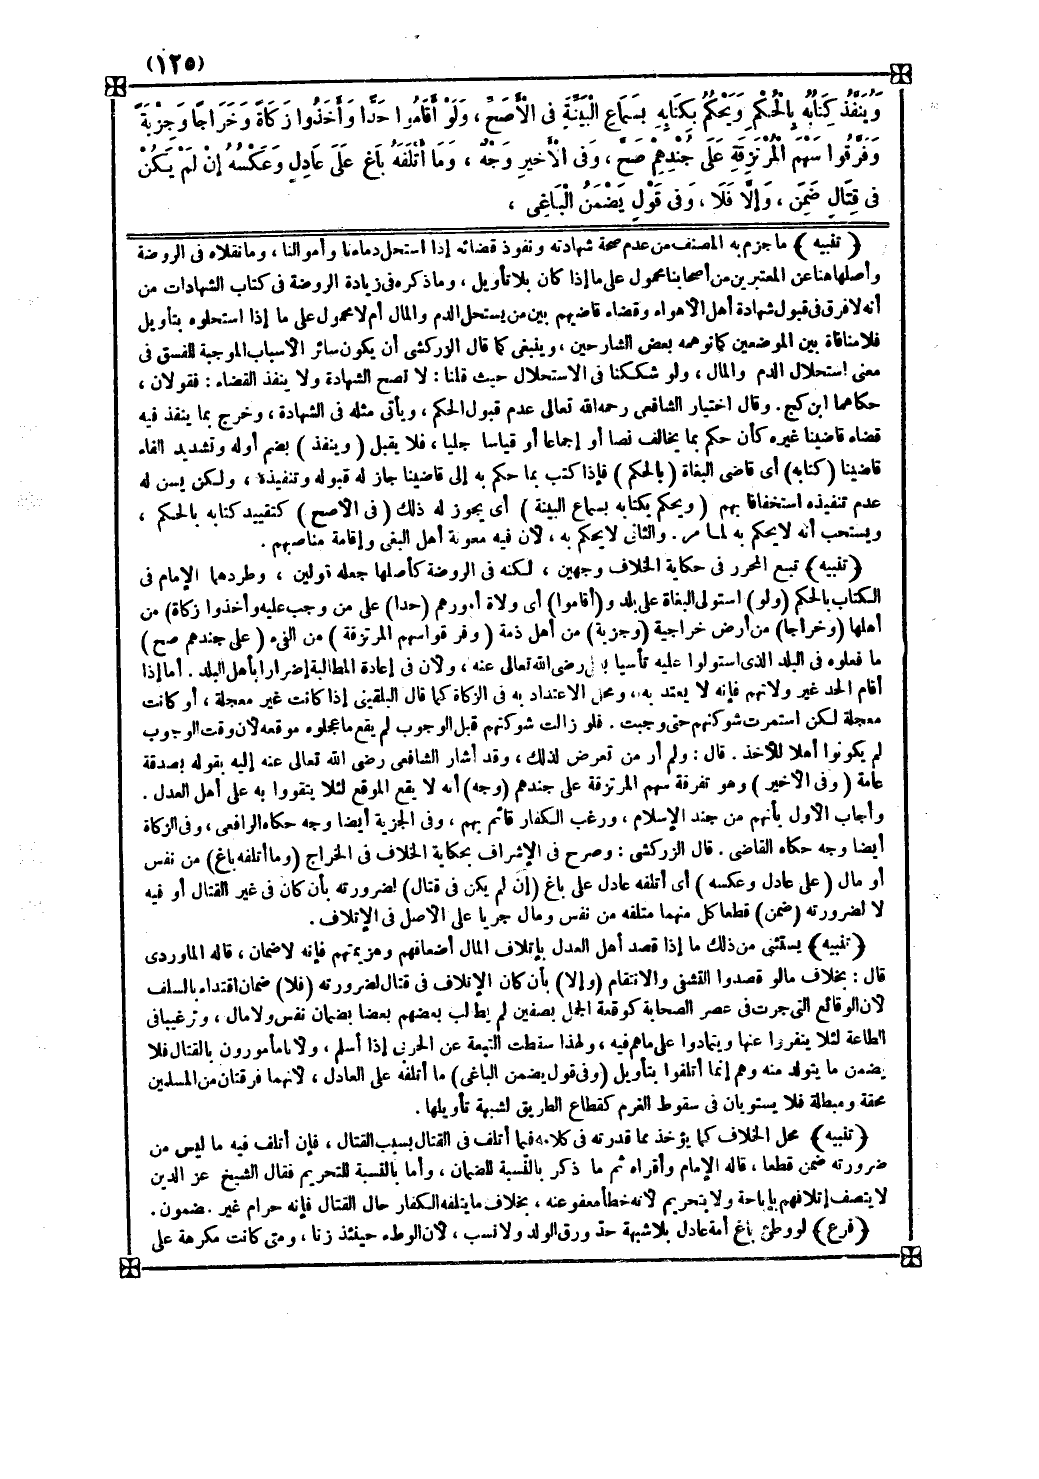 (١٢٥)
وَيُنَفَّذُ كِتَابُهُ بِالْحُكْمِ وَيَحْكُمُ بِكِتَابِهِ بِسَمَاعِ الْبَيِّنَةِ فِى الْأَصَحِّ ، وَلَوْ أَقَامُوا حَدًّا وَأَخَذُوا زَكَاةً وَخَرَاجًا وَجِزْيَةً
وَفَرَّقُوا سَهْمَ الْمُرْتَزِقَةِ عَلَى جُنْدِهِمْ صَحَّ ، وَفِى الْأَخِيرِ وَجْهٌ ، وَمَا أَتْلَفَهُ بَاغٍ عَلَى عَادِلٍ وَعَكْسُهُ إِنْ لَمْ يَكُنْ
فِى قِتَالٍ ضَمِنَ ، وَإِلَّا فَلَا ، وَفِى قَوْلٍ يَضْمَنُ الْبَاغِى ،
( تنبيه ) ما جزم به المصنف من عدم صحة شهادته ونفوذ قضائه إذا استحل دماءنا وأموالنا ، وما نقلاه فى الروضة
وأصلها هنا عن المعتبرين من أصحابنا محمول على ما إذا كان بلا تأويل ، وما ذكره فى زيادة الروضة فى كتاب الشهادات من
أنه لافرق فى قبول شهادة أهل الأهواء وقضاء قاضيهم بين من يستحل الدم والمال أم لا محمول على ما إذا استحلوه بتأويل
فلا منافاة بين الموضعين كما توهمه بعض الشارحين ، وينبغى كما قال الزركشى أن يكون سائر الأسباب الموجبة للفسق فى
معنى استحلال الدم والمال ، ولو شككنا فى الاستحلال حيث قلنا : لا تصح الشهادة ولا ينفذ القضاء : فقولان ،
حكاهما ابن كج . وقال اختيار الشافعى رحمه الله تعالى عدم قبول الحكم ، ويأتى مثله فى الشهادة ، وخرج بما ينفذ فيه
قضاء قاضينا غيره كأن حكم بما يخالف نصا أو إجماعا أو قياسا جليا ، فلا يقبل ( وينفذ ) بضم أوله وتشديد الفاء
قاضينا (كتابه) أى قاضى البغاة (بالحكم ) فإذا كتب بما حكم به إلى قاضينا جاز له قبوله وتنفيذه ، ولكن يسن له
عدم تنفيذه استخفافا بهم ( ويحكم بكتابه بسماع البينة ) أى يجوز له ذلك ( فى الأصح ) كتقييد كتابه بالحكم ،
ويستحب أنه لا يحكم به لما مر . والثانى لا يحكم به ، لأن فيه معونة أهل البغى وإقامة مناصبهم .
( تنبيه ) تبع المحرر فى حكاية الخلاف وجهين ، لكنه فى الروضة كأصلها جعله قولين ، وطردهما الإمام فى
الكتاب بالحكم (ولو) استولى البغاة على بلد و(أقاموا) أى ولاة أمورهم (حدا) على من وجب عليه و(أخذوا زكاة) من
أهلها (وخراجا) من أرض خراجية (وجزية) من أهل ذمة ( وفرقوا سهم المرتزقة ) من الفىء ( على جندهم صح )
ما فعلوه فى البلد الذى استولوا عليه تأسيا بعلى رضى الله تعالى عنه ، ولأن فى إعادة المطالبة إضرارا بأهل البلد . أما إذا
أقام الحد غير ولاتهم فإنه لا يعتد به ، ومحل الاعتداد به فى الزكاة كما قال البلقينى إذا كانت غير معجلة ، أو كانت
معجلة لكن استمرت شوكتهم حتى وجبت . فلو زالت شوكتهم قبل الوجوب لم يقع ما عجلوه موقعه لأن وقت الوجوب
لم يكونوا أهلا للأخذ . قال : ولم أر من تعرض لذلك ، وقد أشار الشافعى رضى الله تعالى عنه إليه بقوله بصدقة
عامة ( وفى الأخير ) وهو تفرقة سهم المرتزقة على جندهم (وجه) أنه لا يقع الموقع لئلا يتقووا به على أهل العدل .
وأجاب الأول بأنهم من جند الإسلام ، ورعب الكفار قائم بهم ، وفى الجزية أيضا وجه حكاه الرافعى ، وفى الزكاة
أيضا وجه حكاه القاضى . قال الزركشى : وصرح فى الإشراف بحكاية الخلاف فى الخراج (وما أتلفه باغ) من نفس
أو مال ( على عادل وعكسه ) أى أتلفه عادل على باغ (إن لم يكن فى قتال) لضرورته بأن كان فى غير القتال أو فيه
لا لضرورته (ضمن) قطعا كل منهما متلفه من نفس ومال جريا على الأصل فى الإتلاف .
( تنبيه) يستثنى من ذلك ما إذا قصد أهل العدل بإتلاف المال أضعافهم وهزيمتهم فإنه لاضمان ، قاله الماوردى
قال : بخلاف مالو قصدوا التشفى والانتقام (وإلا) بأن كان الإتلاف فى قتال لضرورته (فلا) ضمان اقتداء بالسلف
لأن الوقائع التى جرت فى عصر الصحابة كوقعة الجمل بصفين لم يطالب بعضهم بعضا بضمان نفس ولا مال ، وترغيبا فى
الطاعة لئلا ينفروا عنها ويتمادوا على ما هم فيه ، ولهذا سقطت التبعة عن الحربى إذا أسلم ، ولأنا مأمورون بالقتال فلا
يضمن ما يتولد منه وهم إنما أتلفوا بتأويل (وفى قول يضمن الباغى) ما أتلفه على العادل ، لأنهما فرقتان من المسلمين
محقة ومبطلة فلا يستويان فى سقوط الغرم كقطاع الطريق لشبهة تأويلها .
( تنبيه ) محل الخلاف كما يؤخذ مما قدرته فى كلامه فيما أتلف فى القتال بسبب القتال ، فإن أتلف فيه ما ليس من
ضرورته ضمن قطعا ، قاله الإمام وأقراه ثم ما ذكر بالنسبة للضمان ، وأما بالنسبة للتحريم فقال الشيخ عز الدين
لا يتصف إتلافهم بإباحة ولا بتحريم لأنه خطأ معفو عنه ، بخلاف ما يتلفه الكفار حال القتال فإنه حرام غير مضمون .
( فرع ) لو وطئ باغ أمة عادل بلا شبهة حد ورق الولد ولا نسب ، لأن الوطء حينئذ زنا ، ومتى كانت مكرهة على